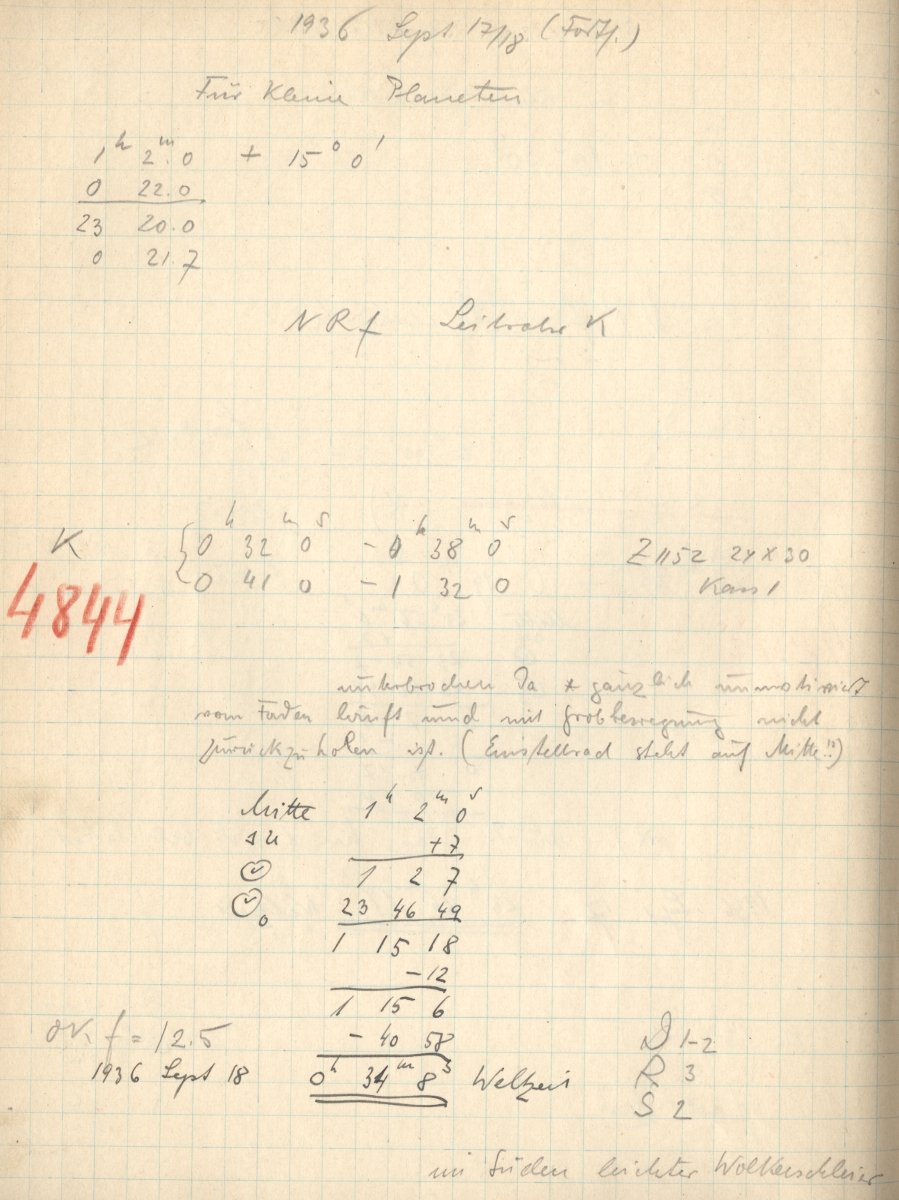 1936 Sept 17/18 (Forts.)
Für Kleine Planeten
1h 2m.0 + 15° 0'
0 22.0
23 20.0
0 21.7
N R f Leitrohr K
K { 0h 32m 0s - 1h 38m 0s Z 1152 24 x 30
0 41 0 - 1 32 0 Kass 1
4844
unterbrochen da * gänzlich unmotiviert
vom Faden läuft und mit Grobbewegung nicht
zurückzuholen ist. (Einstellrad steht auf Mitte!!)
Mitte 1h 2m 0s
su +7
1 2 7
23 46 49
1 15 18
-12
1 15 6
f = 12.5 - 40 58 D 1-2
1936 Sept 18 0h 34m 8s Weltzeit R 3
S 2
im Süden leichter Wolkenschleier